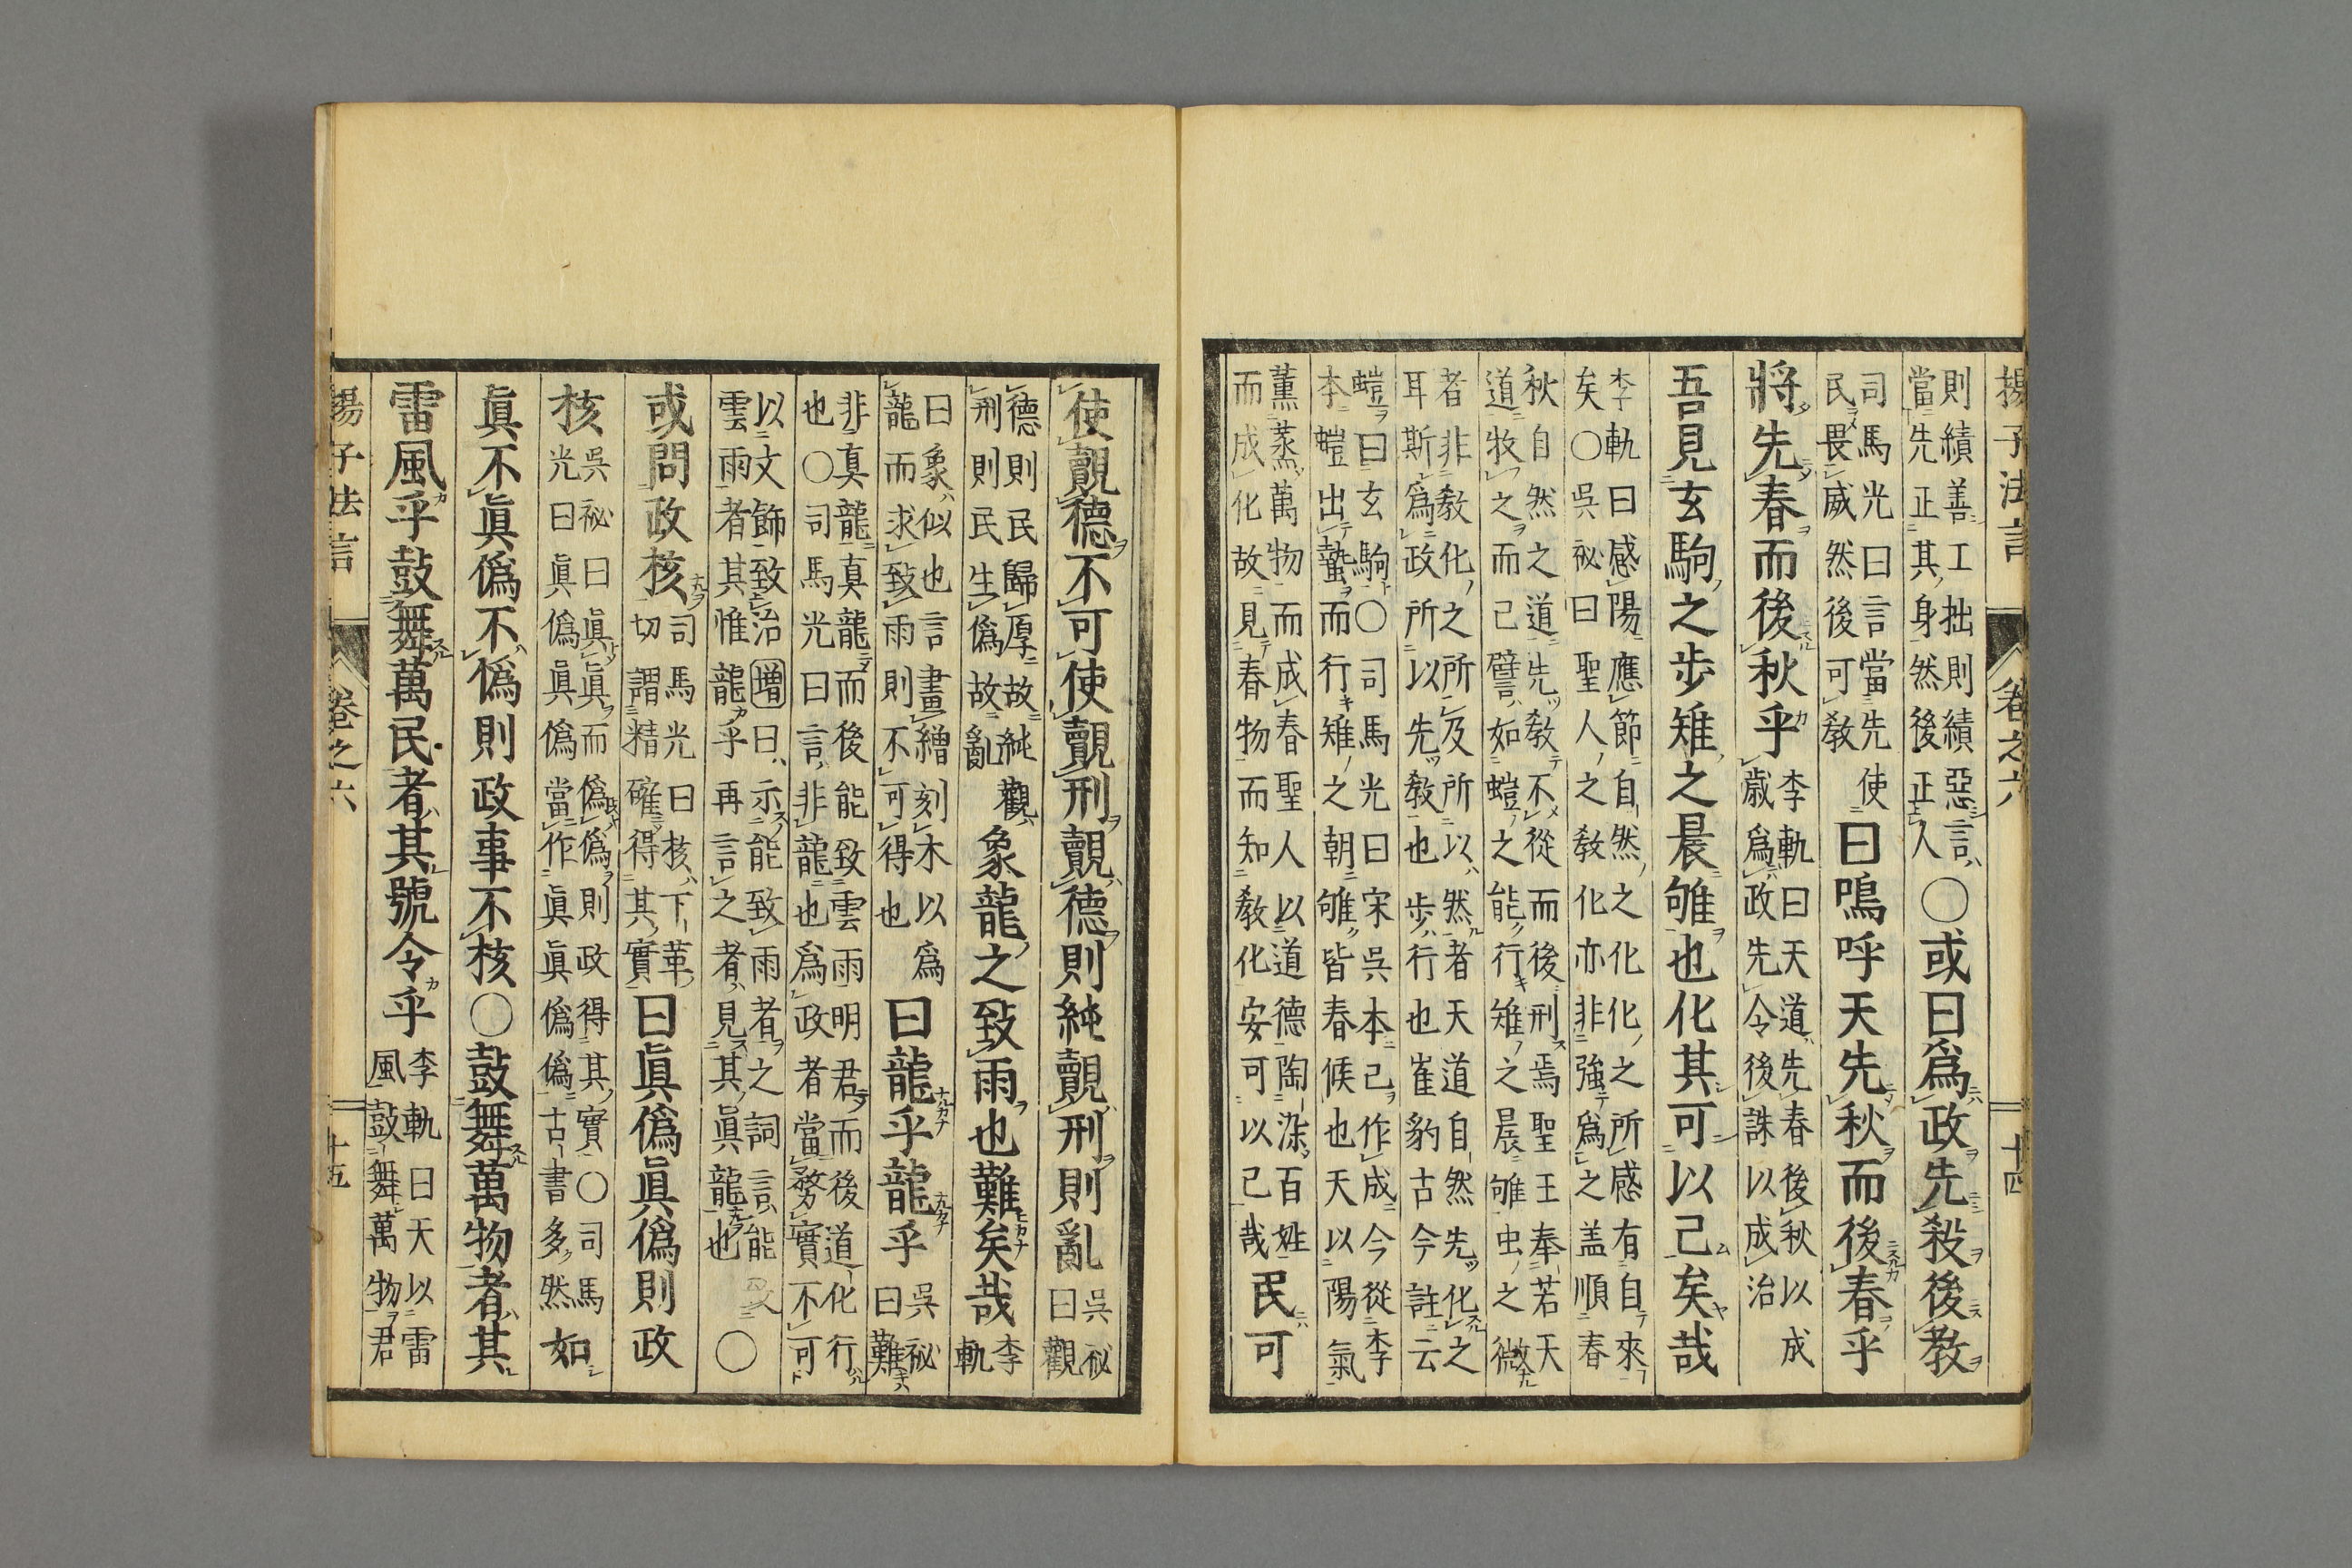 揚子法言 卷之六 十四
則績善工拙則績惡言人
當先正其身然後正
○或曰爲政先殺後教
司馬光曰言當先使
民畏威然後可教
曰嗚呼天先秋而後春乎
將先春而後秋乎
李軌曰天道先春後秋以成
歲爲政先令後誅以成治
吾見玄駒之步雉之晨雊也化其可以已矣哉
李軌曰感陽應節自然之化化之所感有自來
矣○吳祕曰聖人之教化亦非強爲之盖順春
秋自然之道先教不從而後刑焉聖王奉若天
道牧之而已譬如螘之能行雉之晨雊虫之微
者非教化之所及所以然者天道自然先化之
耳斯爲政所以先教也步行也崔豹古今註云
螘曰玄駒○司馬光曰宋吳本已作成今從李
本螘出蟄而行雉之朝雊皆春候也天以陽氣
薰蒸萬物而成春聖人以道德陶染百姓
而成化故見春物而知教化安可以已哉
民可
使覿德不可使覿刑覿德則純覿刑則亂
吳祕
曰觀
德則民歸厚故純觀
刑則民生僞故亂
象龍之致雨也難矣哉
李
軌
曰象似也言畫繒刻木以爲
龍而求致雨則不可得也
曰龍乎龍乎
吳祕
曰難
非真龍真龍而後能致雲雨明君而後道化行
也○司馬光曰言非龍也爲政者當務實不可
以文飾致治增曰示能致雨者之詞言能
雲雨者其惟龍乎再言之者見其眞龍也
○
或問政核
司馬光曰核下革
切謂精確得其實
曰眞僞眞僞則政
核
吳祕曰眞眞而僞僞則政得其實○司馬
光曰眞僞眞僞當作眞眞僞僞古書多然
如
眞不眞僞不僞則政事不核○鼓舞萬物者其
雷風乎鼓舞萬民者其號令乎
李軌曰天以雷
風鼓舞萬物君
揚子法言 卷之六 十五